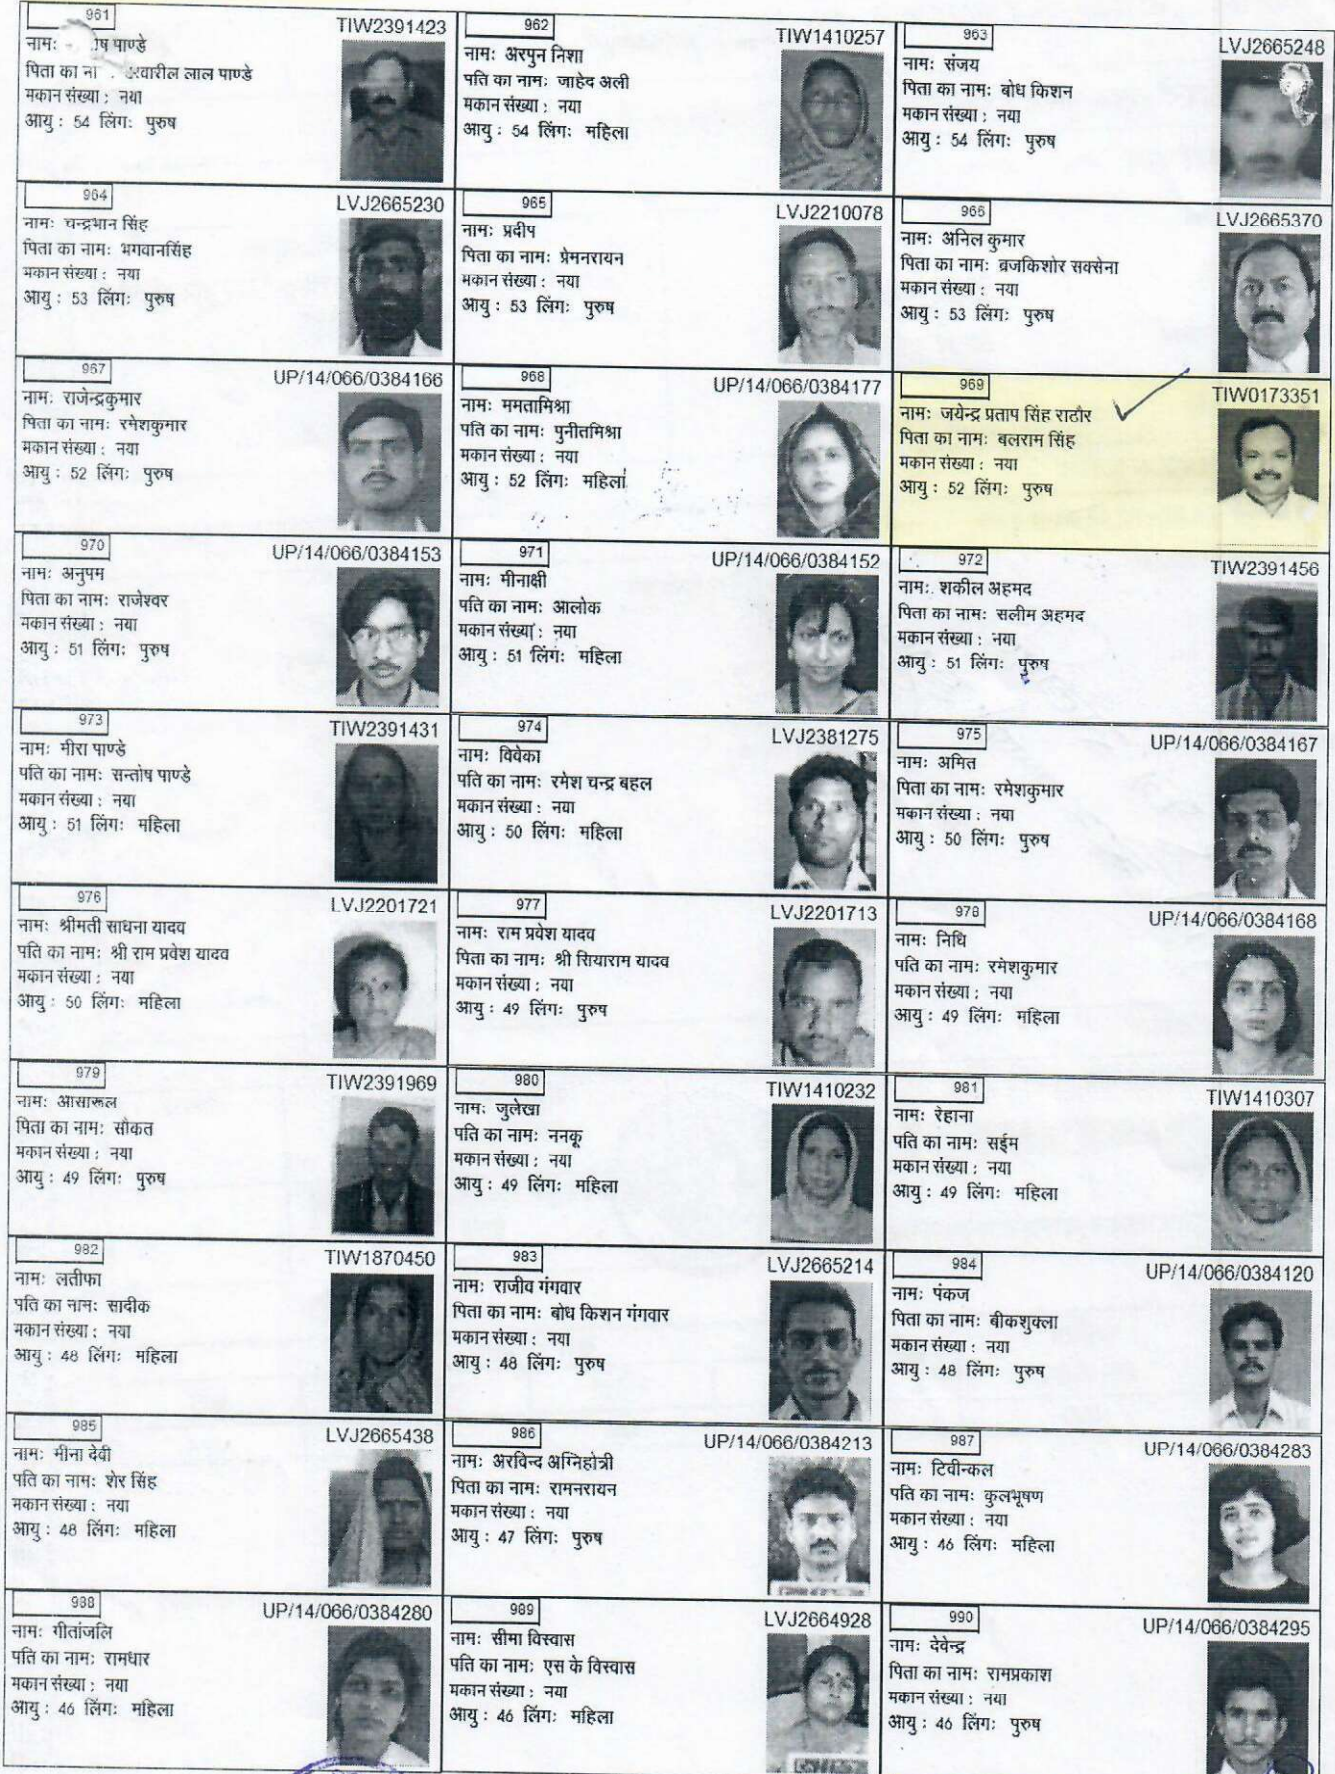 961
TIW2391423
नामः पाण्डे
पिता का लाल पाण्डे
मकान संख्या : नया
आयु : 54 लिंगः पुरुष
962
TIW1410257
नामः अरपुन निशा
पति का नामः जाहेद अली
मकान संख्या : नया
आयु : 54 लिंगः महिला
963
LVJ2665248
नामः संजय
पिता का नामः बोध किशन
मकान संख्या : नया
आयु : 54 लिंगः पुरुष
964
LVJ2665230
नामः चन्द्रभान सिंह
पिता का नामः भगवानसिंह
मकान संख्या : नया
आयु : 53 लिंगः पुरुष
965
LVJ2210078
नामः प्रदीप
पिता का नामः प्रेमनरायन
मकान संख्या : नया
आयु : 53 लिंगः पुरुष
966
LVJ2665370
नामः अनिल कुमार
पिता का नामः ब्रजकिशोर सक्सेना
मकान संख्या : नया
आयु : 53 लिंगः पुरुष
967
UP/14/066/0384166
नामः राजेन्द्रकुमार
पिता का नामः रमेशकुमार
मकान संख्या : नया
आयु : 52 लिंगः पुरुष
968
UP/14/066/0384177
नामः ममतामिश्रा
पति का नामः पुनीतमिश्रा
मकान संख्या : नया
आयु : 52 लिंगः महिला
969
TIW0173351
नामः जयेन्द्र प्रताप सिंह राठौर
पिता का नामः बलराम सिंह
मकान संख्या : नया
आयु : 52 लिंगः पुरुष
970
UP/14/066/0384153
नामः अनुपम
पिता का नामः राजेश्वर
मकान संख्या : नया
आयु : 51 लिंगः पुरुष
971
UP/14/066/0384152
नामः मीनाक्षी
पति का नामः आलोक
मकान संख्या : नया
आयु : 51 लिंगः महिला
972
TIW2391456
नामः शकील अहमद
पिता का नामः सलीम अहमद
मकान संख्या : नया
आयु : 51 लिंगः पुरुष
973
TIW2391431
नामः मीरा पाण्डे
पति का नामः सन्तोष पाण्डे
मकान संख्या : नया
आयु : 51 लिंगः महिला
974
LVJ2381275
नामः विवेका
पति का नामः रमेश चन्द्र बहल
मकान संख्या : नया
आयु : 50 लिंगः महिला
975
UP/14/066/0384167
नामः अमित
पिता का नामः रमेशकुमार
मकान संख्या : नया
आयु : 50 लिंगः पुरुष
976
LVJ2201721
नामः श्रीमती साधना यादव
पति का नामः श्री राम प्रवेश यादव
मकान संख्या : नया
आयु : 50 लिंगः महिला
977
LVJ2201713
नामः राम प्रवेश यादव
पिता का नामः श्री सियाराम यादव
मकान संख्या : नया
आयु : 49 लिंगः पुरुष
978
UP/14/066/0384168
नामः निधि
पति का नामः रमेशकुमार
मकान संख्या : नया
आयु : 49 लिंगः महिला
979
TIW2391969
नामः आसारूल
पिता का नामः सौकत
मकान संख्या : नया
आयु : 49 लिंगः पुरुष
980
TIW1410232
नामः जुलेखा
पति का नामः ननकू
मकान संख्या : नया
आयु : 49 लिंगः महिला
981
TIW1410307
नामः रेहाना
पति का नामः सईम
मकान संख्या : नया
आयु : 49 लिंगः महिला
982
TIW1870450
नामः लतीफा
पति का नामः सादीक
मकान संख्या : नया
आयु : 48 लिंगः महिला
983
LVJ2665214
नामः राजीव गंगवार
पिता का नामः बोध किशन गंगवार
मकान संख्या : नया
आयु : 48 लिंगः पुरुष
984
UP/14/066/0384120
नामः पंकज
पिता का नामः बीकशुक्ला
मकान संख्या : नया
आयु : 48 लिंगः पुरुष
985
LVJ2665438
नामः मीना देवी
पति का नामः शेर सिंह
मकान संख्या : नया
आयु : 48 लिंगः महिला
986
UP/14/066/0384213
नामः अरविन्द अग्निहोत्री
पिता का नामः रामनरायन
मकान संख्या : नया
आयु : 47 लिंगः पुरुष
987
UP/14/066/0384283
नामः टिवीन्कल
पति का नामः कुलभूषण
मकान संख्या : नया
आयु : 46 लिंगः महिला
988
UP/14/066/0384280
नामः गीतांजलि
पति का नामः रामधार
मकान संख्या : नया
आयु : 46 लिंगः महिला
989
LVJ2664928
नामः सीमा विस्वास
पति का नामः एस के विस्वास
मकान संख्या : नया
आयु : 46 लिंगः महिला
990
UP/14/066/0384295
नामः देवेन्द्र
पिता का नामः रामप्रकाश
मकान संख्या : नया
आयु : 46 लिंगः पुरुष